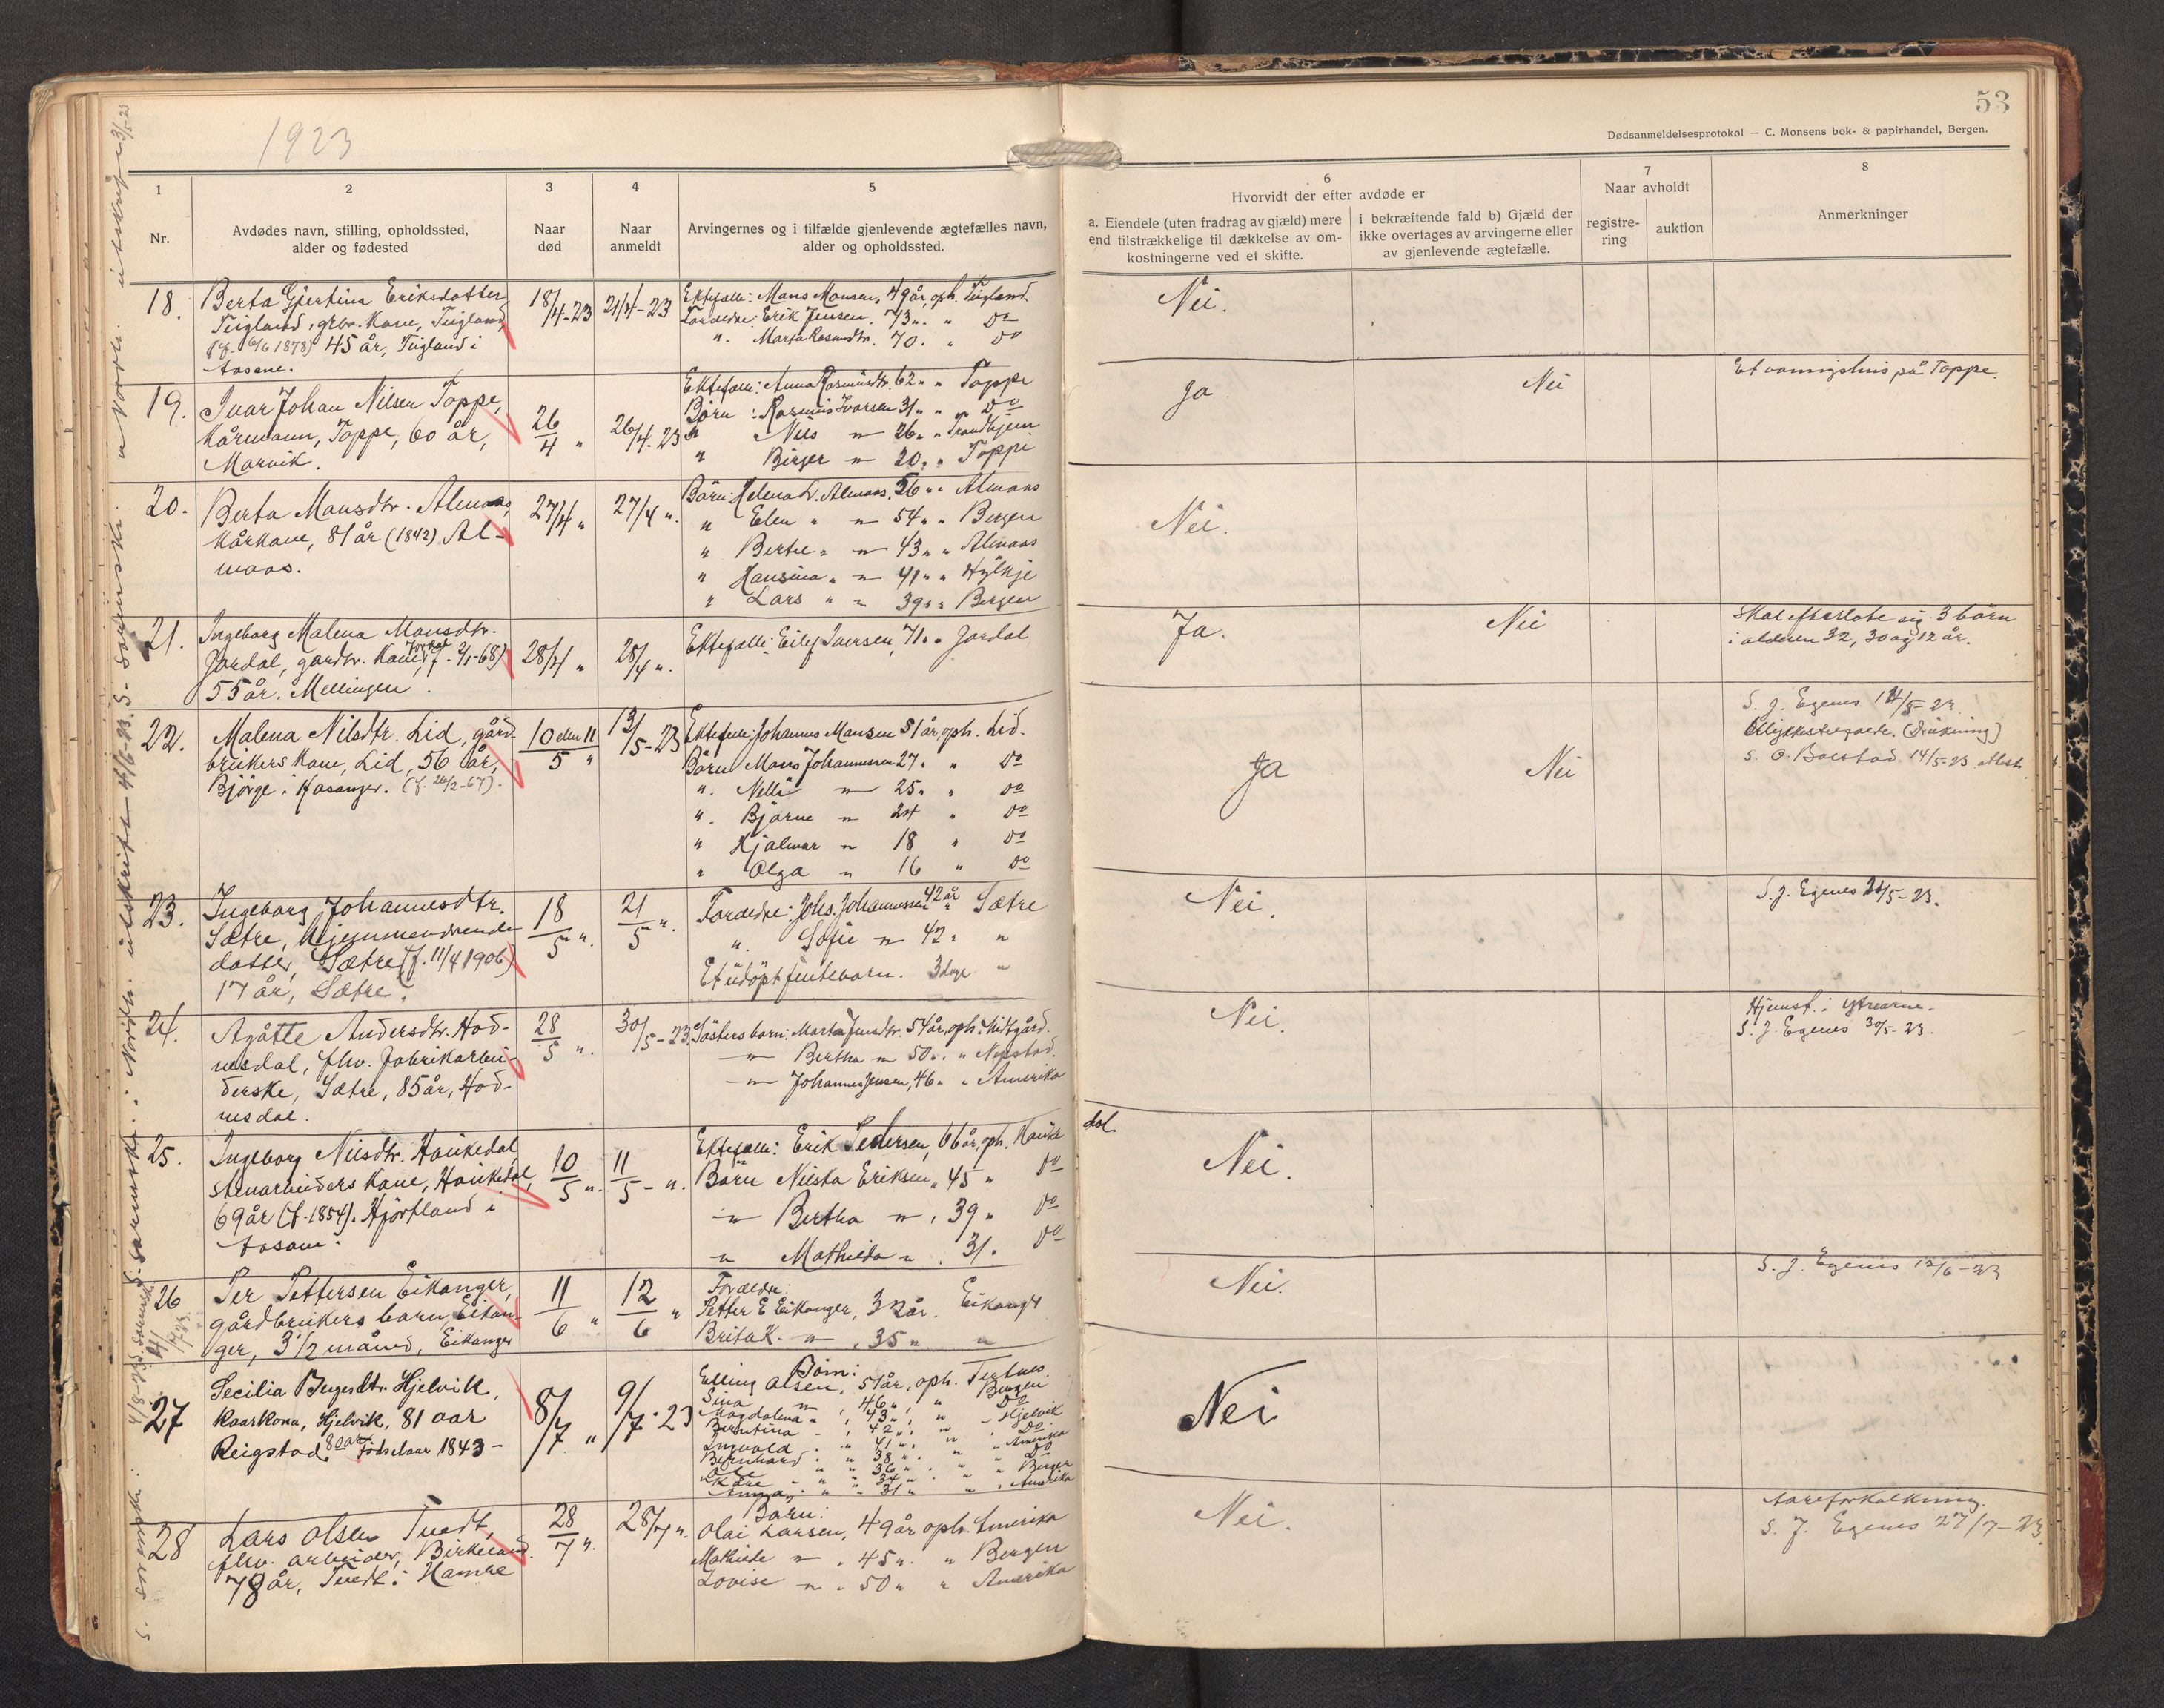 1923
53
Dødsanmeldelsesprotokol — C. Monsens bok- & papirhandel, Bergen.
1
Nr.
2
Avdødes navn, stilling, opholdssted,
alder og fødested
3
Naar
død
4
Naar
anmeldt
5
Arvingernes og i tilfælde gjenlevende ægtefælles navn,
alder og opholdssted.
6
Hvorvidt der efter avdøde er
a. Eiendele (uten fradrag av gjæld) mere
end tilstrækkelige til dækkelse av om-
kostningerne ved et skifte.
i bekræftende fald b) Gjæld der
ikke overtages av arvingerne eller
av gjenlevende ægtefælle.
7
Naar avholdt
registre-
ring
auktion
8
Anmerkninger
18.
Berta Gjertina Eriksdatter
Teigland, grbr. kone, Teigland
(f. 6/6 1878) 45 år, Teigland i
Aasane.
18/4-23
21/4-23
Ektefælle: Mons Monsen, 49 år, oph. Teigland
Foreldre: Erik Jensen, 73 " " Do
" Marta Rasmusdtr. 70. " Do
Nei.
19.
Ivar Johan Nilsen Toppe,
Kårmann, Toppe, 60 år,
Marvik.
26/4 "
26/4-23
Ektefælle: Anna Rasmusdtr. 62 " " Toppe
Børn: Rasmus Ivarsen 31 " " Do
" Nils " 26 " " Trondhjem
" Birger " 20 " " Toppe
Ja
Nei
Et vaaningshus på Toppe.
20.
Berta Monsdtr. Almaas,
Kårkone, 81 år (1842) Al-
maas.
27/4 "
27/4 "
Børn: Helena L. Almaas, 56 " " Almaas
" Elen " " 54 " " Bergen
" Bertel " " 43 " " Almaas
" Hansina " " 41 " " Hylkje
" Lars " " 39 " " Bergen
Nei.
21.
Ingeborg Malena Monsdtr.
Jordal, gardbr. kone, (f. 2/1-68)
55 år. Mellingen.
28/4 "
28/4 "
Ektefælle: Eilef Iversen, 71 " " Jordal
Ja.
Nei
Skal efterlate sig 3 børn
i alderen 32, 30 og 12 år.
22.
Malena Nilsdtr. Lid, gård-
brukers kone, Lid, 56 år,
Bjørge i Hosanger. (f. 26/2-67).
10 eller 11/5 "
13/5-23
Ektefelle: Johannes Monsen 51 år, oph. Lid.
Børn Mons Johannessen 27 " " Do
" Nelli " 25 " " Do
" Bjarne " 24 " Do
" Hjalmar " 18 " Do
" Olga " 16 " Do
Ja
Nei
S. J. Egenes 14/5-23.
Ulykkestilfælde. (Drukning)
S. O. Bolstad 14/5-23
23.
Ingeborg Johannesdtr.
Sætre, hjemmeværende
datter, Sætre (f. 11/4 1906)
17 år, Sætre.
18/5 "
21/5 "
Foreldre: Johs. Johannessen 42 år " Sætre
" Sofie " 42 " "
Et udøpt jentebarn. 3 dage "
Nei.
S. J. Egenes 21/5-23.
24.
Agåtte Andersdtr. Hod-
nesdal, fhv. fabrikarbei-
derske, Sætre, 85 år, Hod-
nesdal.
28/5 "
30/5-23
Søsters barn: Marta Jensdtr. 54 år, oph. Midtgård.
" Bertha " 50 " " Nygstad.
" Johannes Jensen, 46 " " Amerika
Nei.
Hjemst. i Ytrearne.
S. J. Egenes 30/5-23.
25.
Ingeborg Nilsdtr. Haukedal
Stenarbeiders kone, Haukedal,
69 år (f. 1854). Hjortland i
Aasane.
10/5 "
11/5 - "
Ektefælle: Erik Pedersen, 66 år, oph. Hauke
dal.
Børn Nilsta Eriksen " 45 " Do
" Bertha " , 39 " Do
" Mathilda " . 31. Do
Nei.
26
Per Pettersen Eikanger,
gårdbrukers barn, Eikan-
ger, 3 1/2 måned, Eikanger
11/6 "
12/6 "
Foreldre:
Petter E Eikanger, 32 år. Eikanger
Brita K. " , 35 " "
Nei.
S. J. Egenes 12/6-23
27
Cecilia Bergesdtr. Hjelvik,
Kaarkona, Hjelvik, 81 aar
Reigstad 80 aar Fødselaar 1843 -
8/7 "
9/7-23
Børn:
Elling Olsen, 51 år, oph. Tertnes
Sina " , 46 " , " Bergen
Magdalena " , 43 " , " Do
Berntina " , 42 " , " Hjelvik
Ingvald " " 41 " , " Do
Bernhard " " 38 " . " Amerika
Ole " " 36 " . " Do
Kåre " " 34 " . " Bergen
Anna " " 31 " " , Amerika
Nei
28
Lars Olsen Tvedt,
fhv. arbeider, Birkeland.
78 år, Tvedt i Hamre
28/7 "
28/7 "
Børn:
Olai Larsen, 49 år oph. Amerika
Mathilde " . 45 " . " Bergen
Lovise " . 50 " " Amerika
Nei.
Aareforkalkning.
S. J. Egenes 27/7-23.